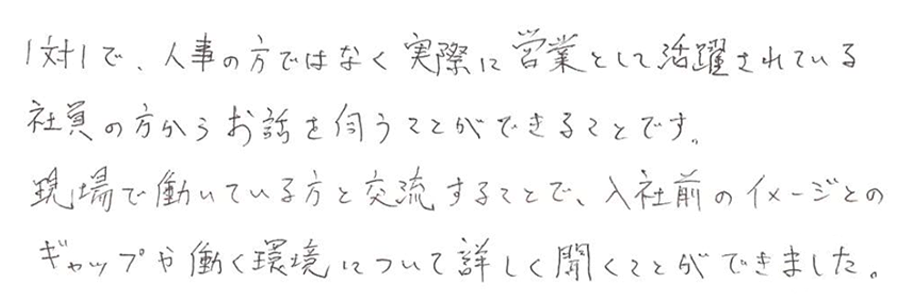 1対1で、人事の方ではなく実際に営業として活躍されている
社員の方からお話を伺うことができることです。
現場で働いている方と交流することで、入社前のイメージとの
ギャップや働く環境について詳しく聞くことができました。